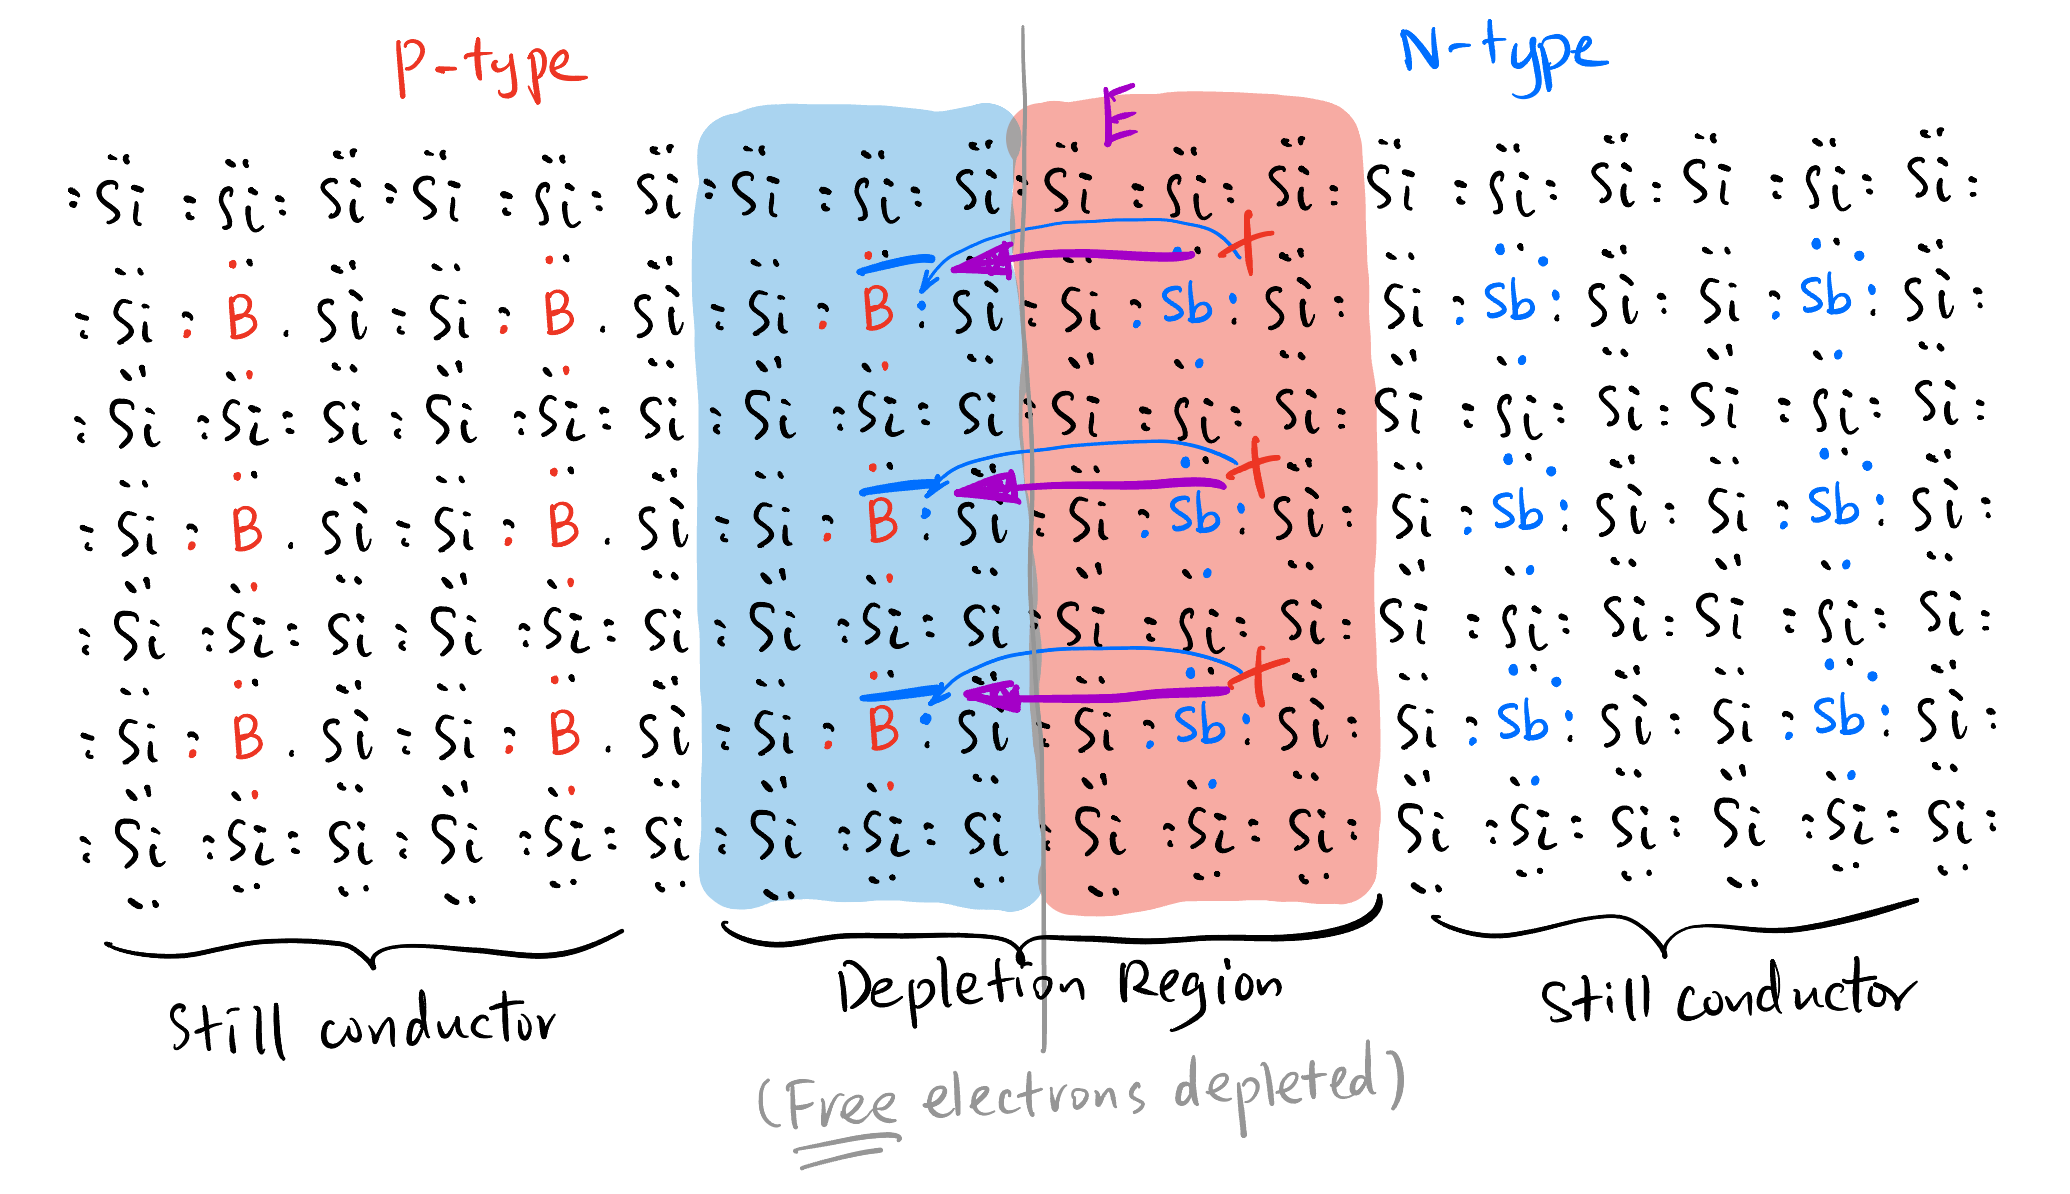 P-type
N-type
E
Si Si Si Si Si Si Si Si Si Si Si Si Si Si Si Si Si Si
Si B Si Si B Si Si B Si Si Sb Si Si Sb Si Si Sb Si
Si Si Si Si Si Si Si Si Si Si Si Si Si Si Si Si Si Si
Si B Si Si B Si Si B Si Si Sb Si Si Sb Si Si Sb Si
Si Si Si Si Si Si Si Si Si Si Si Si Si Si Si Si Si Si
Si B Si Si B Si Si B Si Si Sb Si Si Sb Si Si Sb Si
Si Si Si Si Si Si Si Si Si Si Si Si Si Si Si Si Si Si
Still conductor
Depletion Region
Still conductor
(Free electrons depleted)